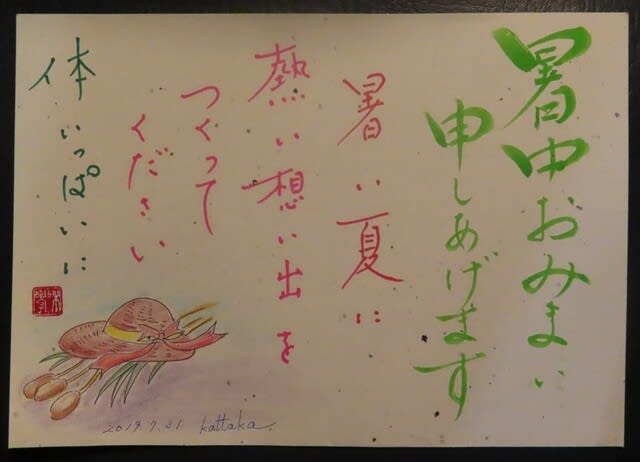 暑中おみまい
申しあげます
暑い夏に
熱い想い出を
つくって
ください
体いっぱいに
2019.7.21 kattaka.